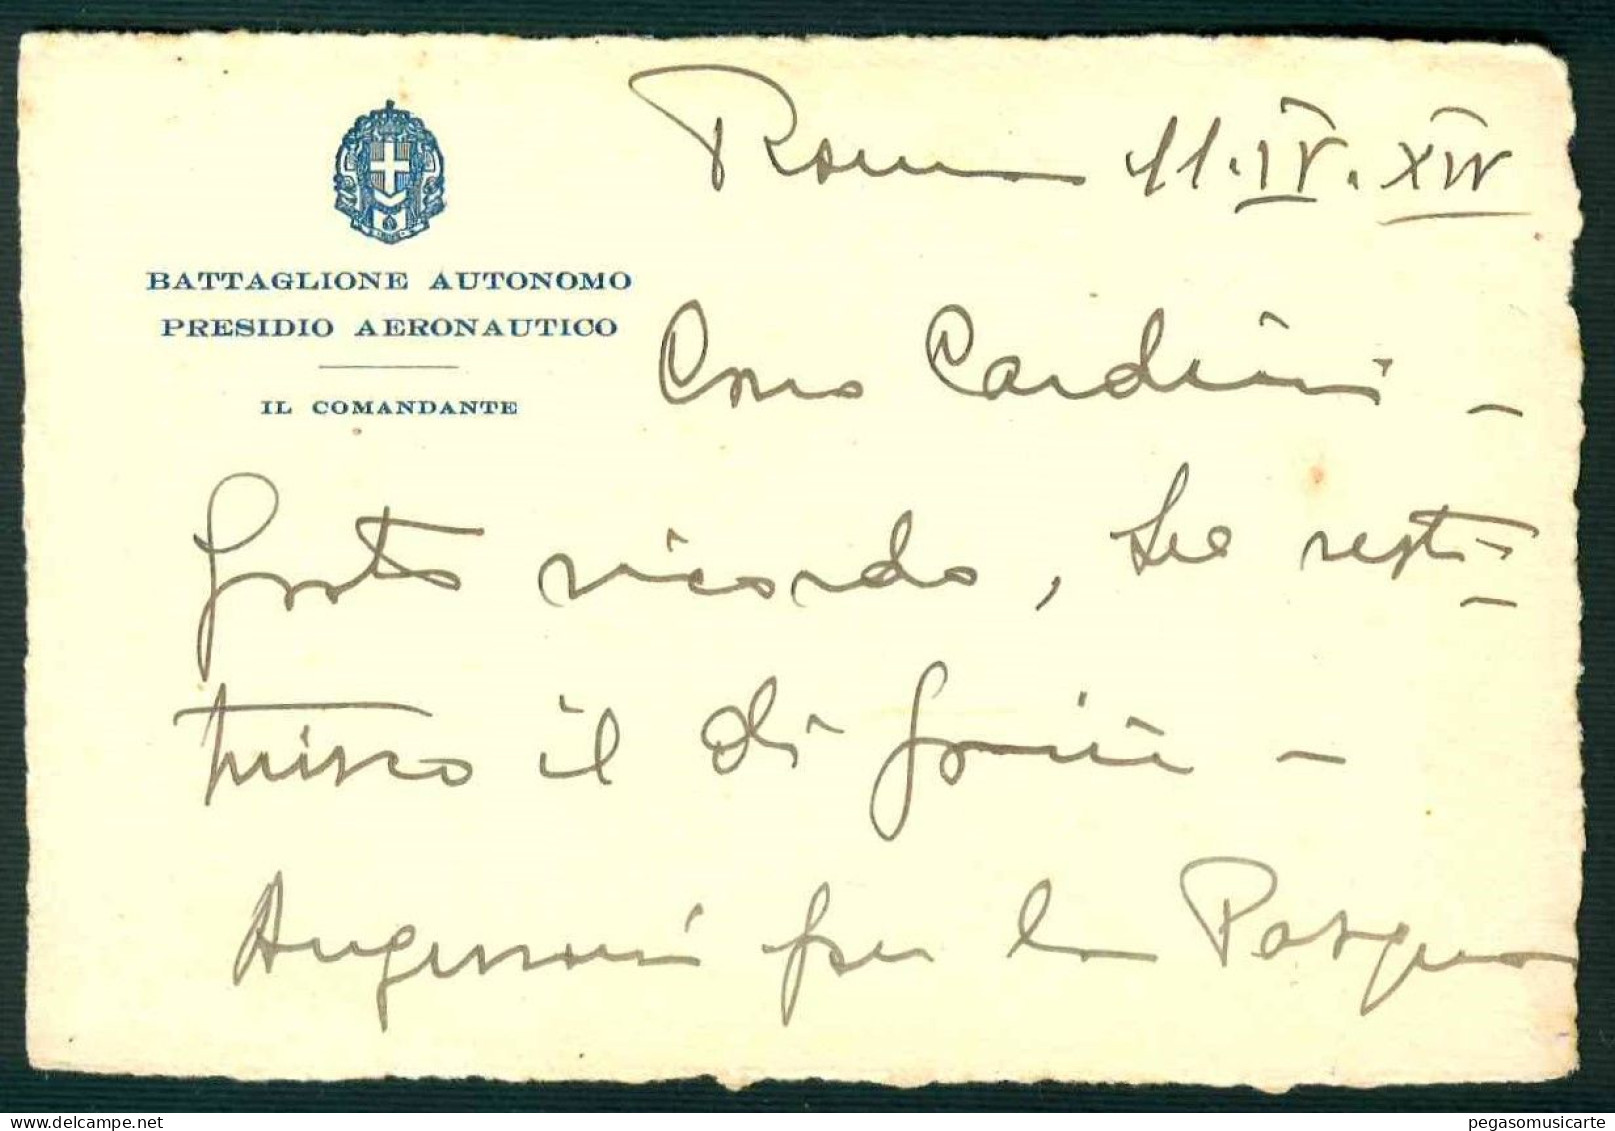 BATTAGLIONE AUTONOMO
PRESIDIO AERONAUTICO
IL COMANDANTE
Roma 11·IV·XIV
Caro Cardini –
Grato ricordo, Le resti-
tuisco il di
Auguroni per la Pasqua
pegasomusicarte